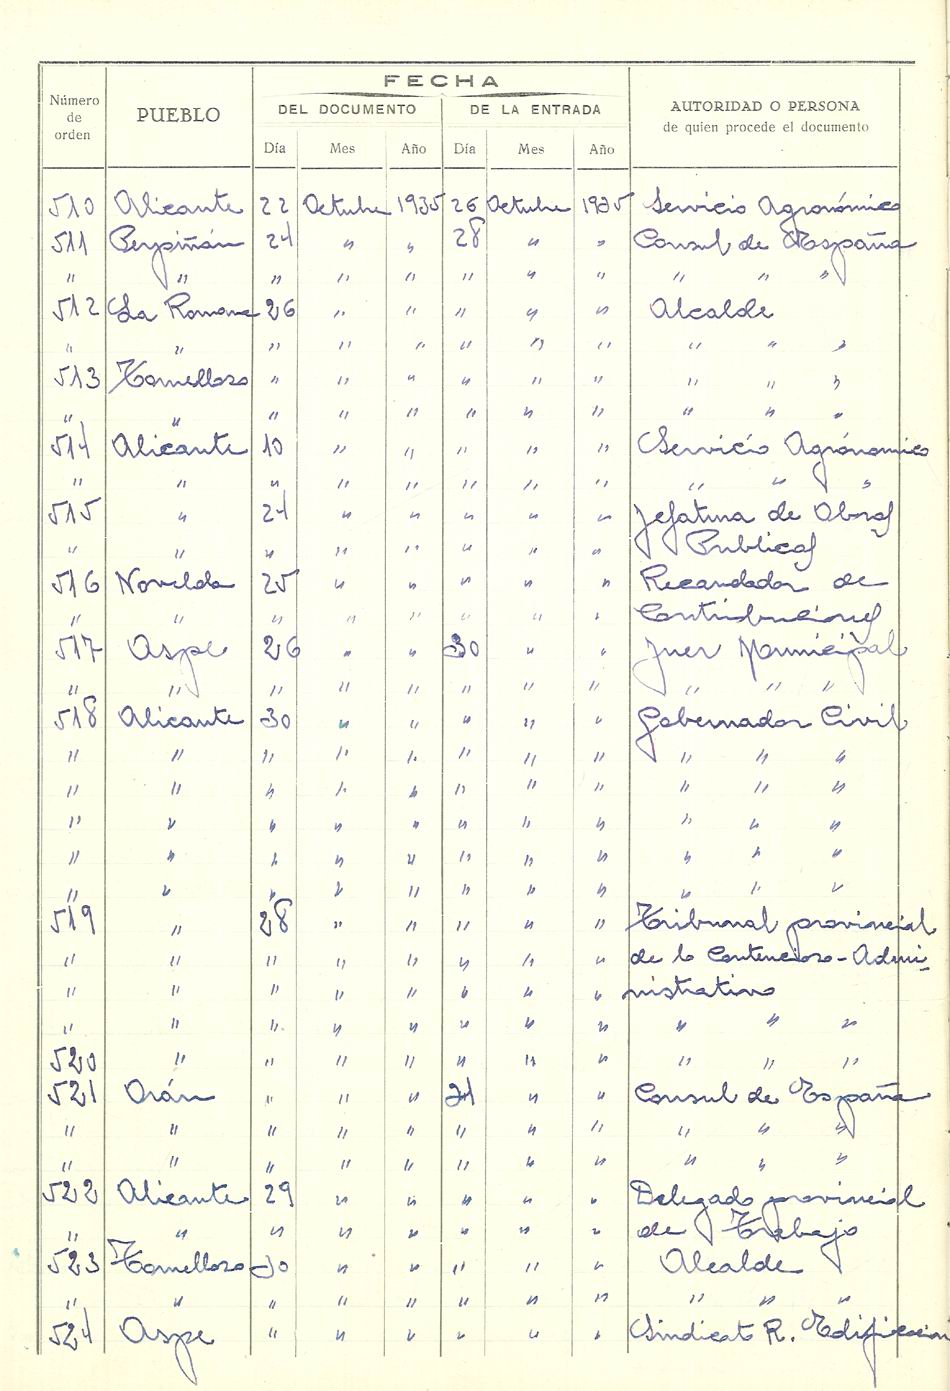 FECHA
Número de orden PUEBLO DEL DOCUMENTO DE LA ENTRADA AUTORIDAD O PERSONA de quien procede el documento
Día Mes Año Día Mes Año
510 Alicante 22 Octubre 1935 26 Octubre 1935 Servicio Agronómico
511 Perpiñán 24 " " 28 " " Consul de España
" " " " " " " " " " "
512 La Romana 26 " " " " " Alcalde
" " " " " " " " " " "
513 Tomelloso " " " " " " " " "
" " " " " " " " " " "
514 Alicante 10 " " " " " Servicio Agrónomico
" " " " " " " " " " "
515 " 24 " " " " " Jefatura de Obras
" " " " " " " " Publicas
516 Novelda 25 " " " " " Recaudador de
" " " " " " " " Contribuciones
517 Aspe 26 " " 30 " " Juez Municipal
" " " " " " " " " " "
518 Alicante 30 " " " " " Gobernador Civil
" " " " " " " " " " "
" " " " " " " " " " "
" " " " " " " " " " "
" " " " " " " " " " "
" " " " " " " " " " "
519 " 28 " " " " " Tribunal provincial
" " " " " " " " de lo Contencioso-Admi-
" " " " " " " " nistrativo
" " " " " " " " " " "
520 " " " " " " " " " "
521 Orán " " " 31 " " Consul de España
" " " " " " " " " " "
" " " " " " " " " " "
522 Alicante 29 " " " " " Delegado provincial
" " " " " " " " de Trabajo
523 Tomelloso 30 " " " " " Alcalde
" " " " " " " " " " "
524 Aspe " " " " " " Sindicato R. Edificacion